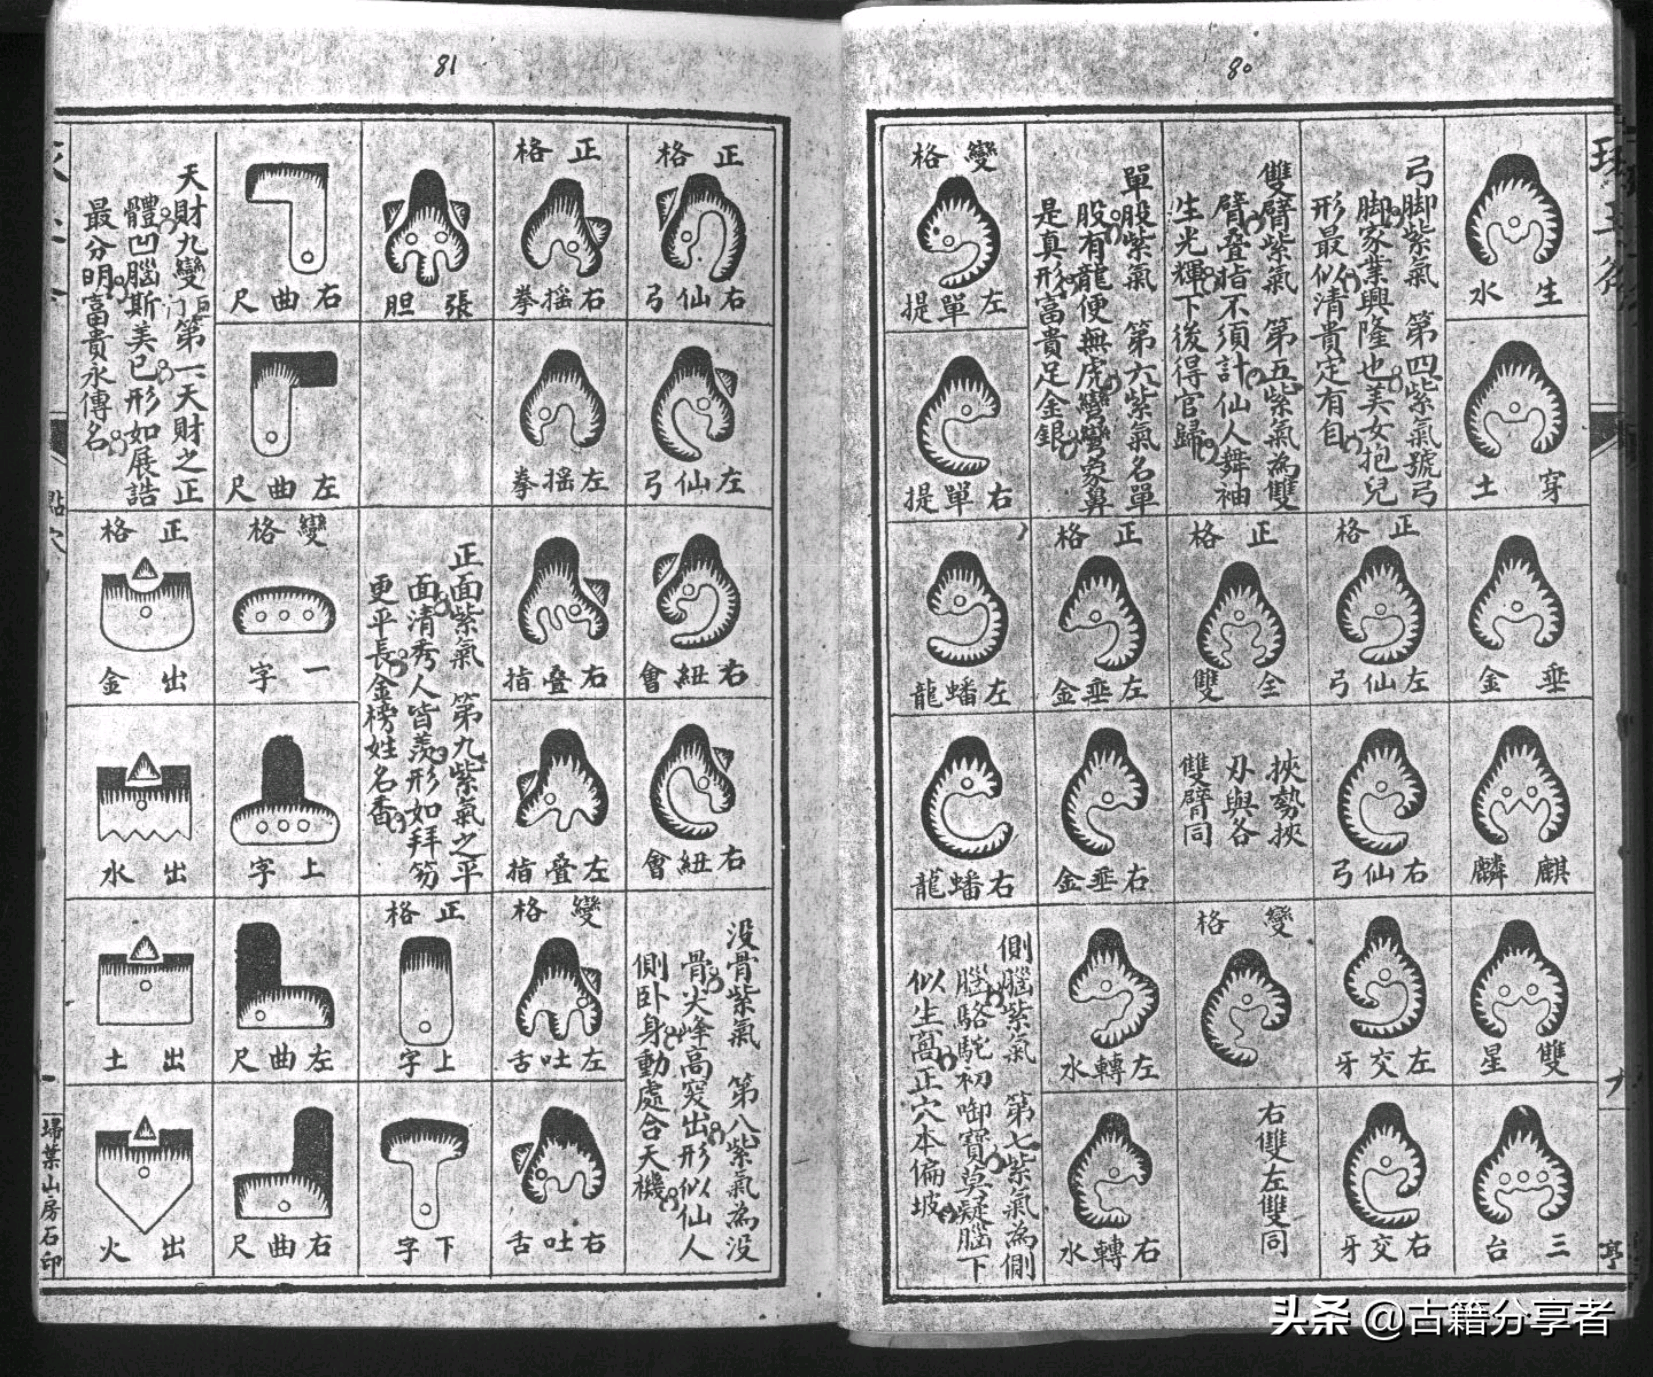 80
生水
穿土
垂金
麒麟
雙星
三台
弓脚紫氣 第四紫氣號弓
脚家業興隆也美女抱兒
形最似清貴定有自
正格
左仙弓
右仙弓
左交牙
右交牙
雙臂紫氣 第五紫氣為雙
臂叠指不須計仙人舞袖
生光輝下後得官歸
正格
全雙
挾勢挾
刄與各
雙臂同
變格
右雙左雙同
單股紫氣 第六紫氣名單
股有龍便無虎彎彎象鼻
是真形富貴足金銀
正格
左垂金
右垂金
左轉水
右轉水
變格
左單提
右單提
左蟠龍
右蟠龍
側腦紫氣 第七紫氣為側
腦駱駝初啣寶莫疑腦下
似生窩正穴本偏坡
81
正格
右仙弓
左仙弓
右紐會
右紐會
没骨紫氣 第八紫氣為没
骨火峰高突出形似仙人
側卧身動處合天機
正格
右摇拳
左摇拳
右叠指
左叠指
變格
左吐舌
右吐舌
張胆
正面紫氣 第九紫氣之平
面清秀人皆羨形如拜笏
更平長金榜姓名香
正格
上字
下字
右曲尺
左曲尺
變格
一字
上字
左曲尺
右曲尺
天財九變 第一天財之正
體凹腦斯美已形如展誥
最分明富貴永傳名
正格
出金
出水
出土
出火
點穴
埽葉山房石印
头条 @古籍分享者